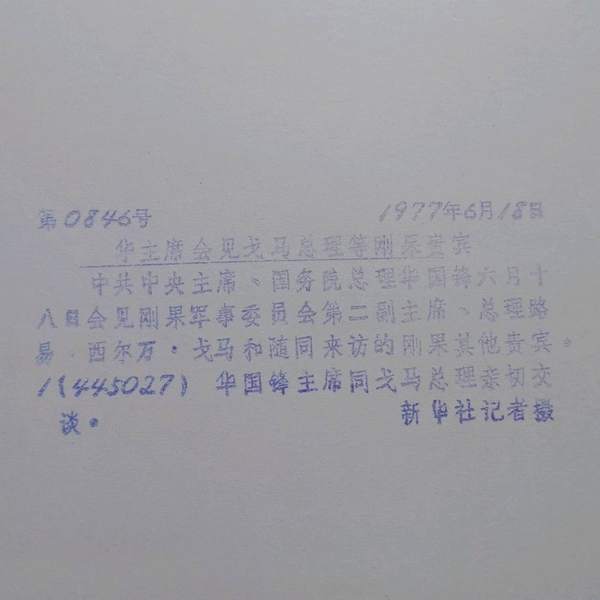 第0846号 1977年6月18日
华主席会见戈马总理等刚果贵宾
中共中央主席、国务院总理华国锋六月十
八日会见刚果军事委员会第二副主席、总理路
易·西尔万·戈马和随同来访的刚果其他贵宾。
1(445027) 华国锋主席同戈马总理亲切交
谈。 新华社记者摄